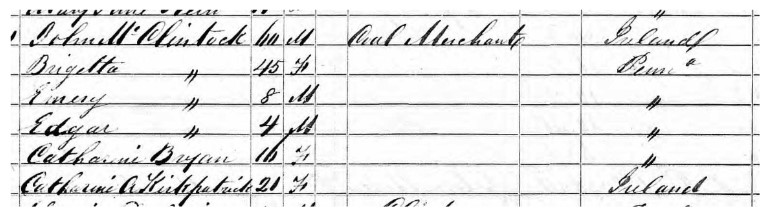 John McClintock 60 M Coal Merchant Ireland
Brigetta " 45 F Penna
Emery " 8 M "
Edgar " 4 M "
Catharine Bryan 16 F "
Catharine A Kirkpatrick 20 F Ireland